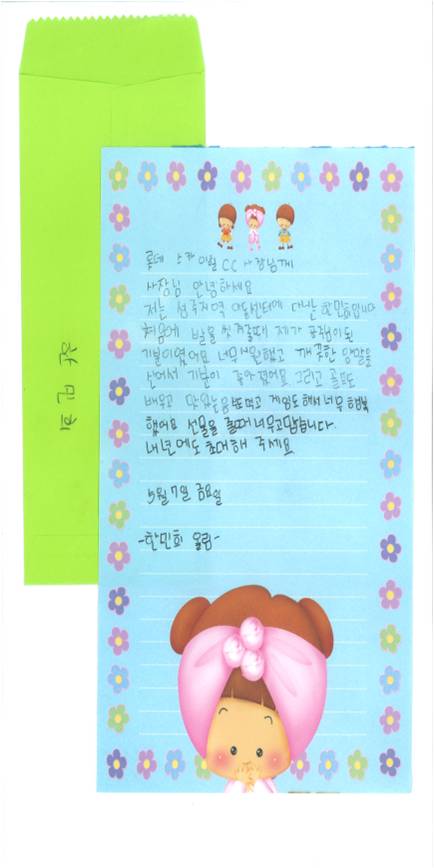 롯데 스카이힐 CC 사장님께
사장님 안녕하세요
저는 성주지역 아동센터에 다니는 한민희입니다
처음에 발을 씻겨줄때 제가 이된
기분이였어요 너무시원했고 깨끗한 양말을
신어서 기분이 좋아졌어요 그리고 골프도
배우고 먹고 게임도해서 너무 행복
했어요 선물을 줄때 너무고맙습니다.
내년에도 초대해 주세요
5월 7일 금요일
-한민희 올림-
한민희